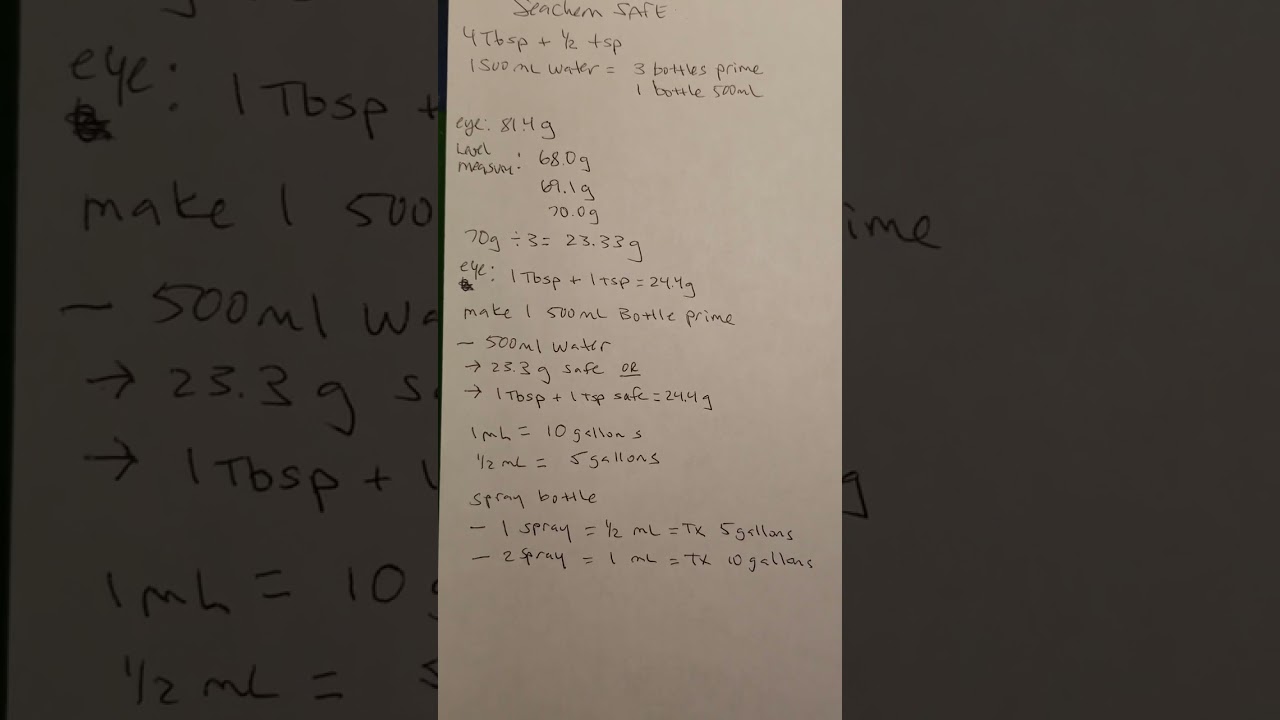 Seachem SAFE
4 Tbsp + 1/2 tsp
1500mL water = 3 bottles prime
1 bottle 500mL
eye: 81.4g
Level measure: 68.0g
69.1g
70.0g
70g ÷ 3 = 23.33g
eye: 1 Tbsp + 1 tsp = 24.4g
make 1 500mL Bottle prime
- 500ml water
→ 23.3 g safe OR
→ 1 Tbsp + 1 Tsp safe = 24.4g
1mL = 10 gallons
1/2 mL = 5 gallons
spray bottle
- 1 spray = 1/2 mL = TX 5 gallons
- 2 spray = 1 mL = TX 10 gallons